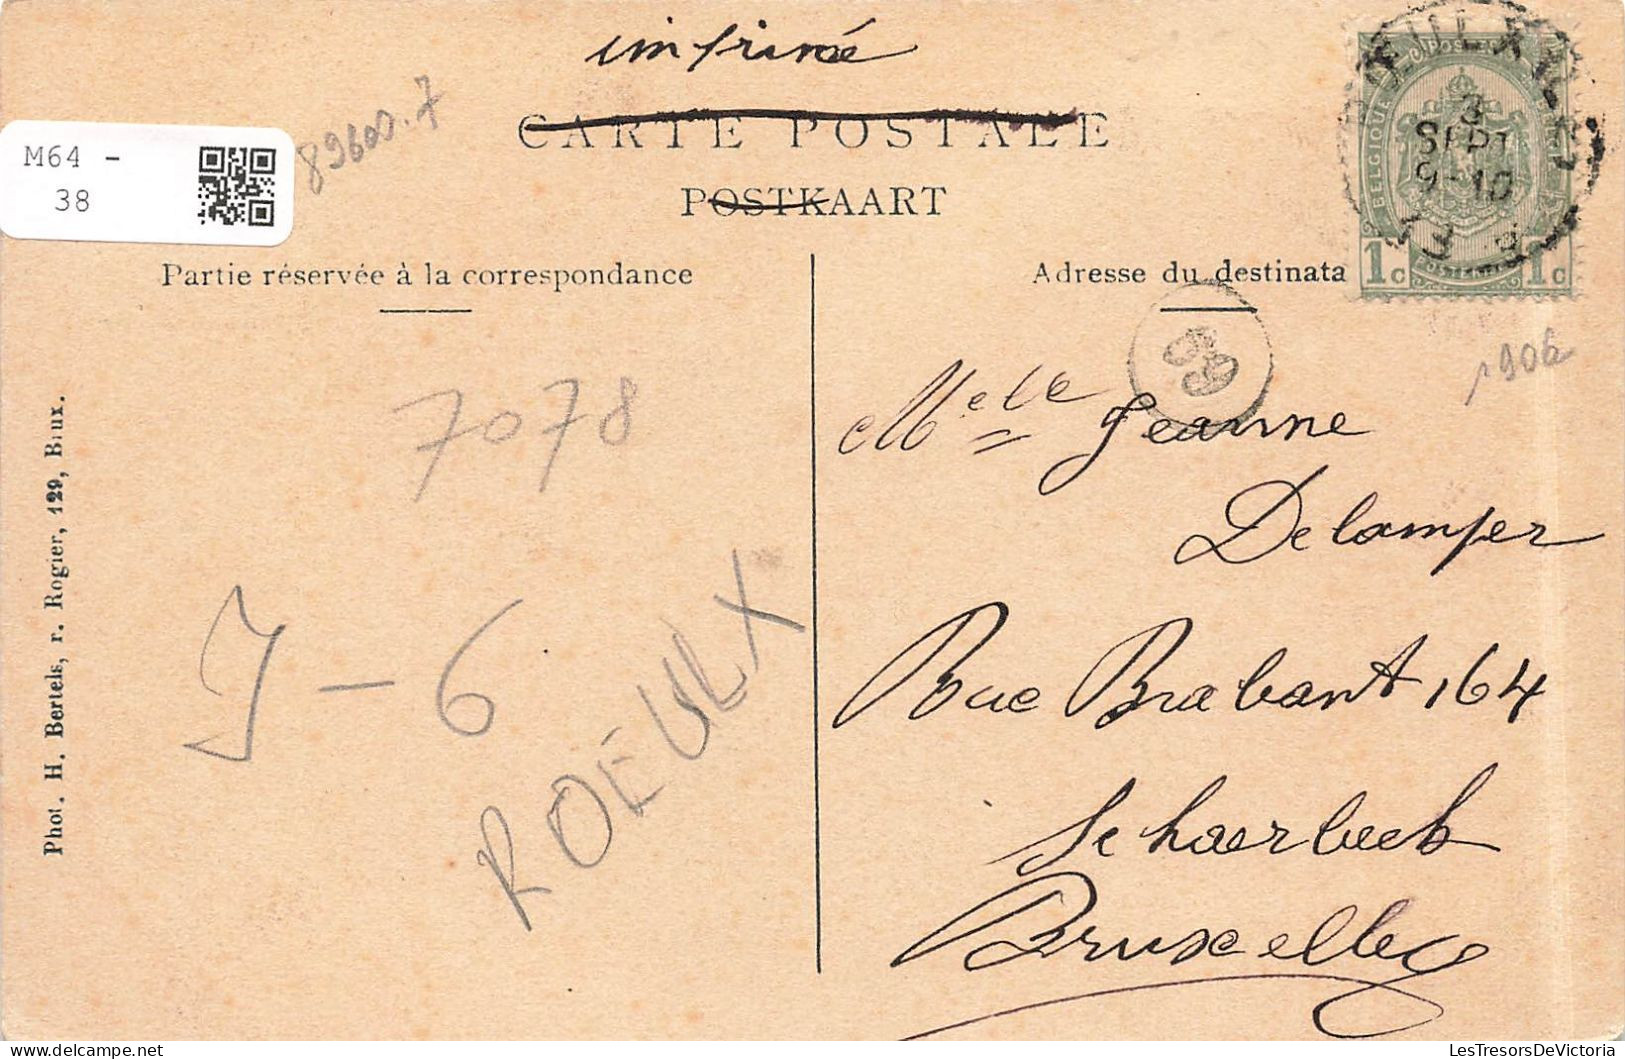 imprimé
89600.7
CARTE POSTALE
M64 -
38
POSTKAART
BELGIQUE
3
SEPT
9-10
1c 1c
POSTERIJEN
Partie réservée à la correspondance
Adresse du destinata
99
1906
7078
Melle Jeanne
Delamper
J - 6
ROEULX
Rue Brabant 164
Schaerbeek
Bruxelles
Phot. H. Bertels, r. Rogier, 129, Brux.
LesTresorsDeVictoria